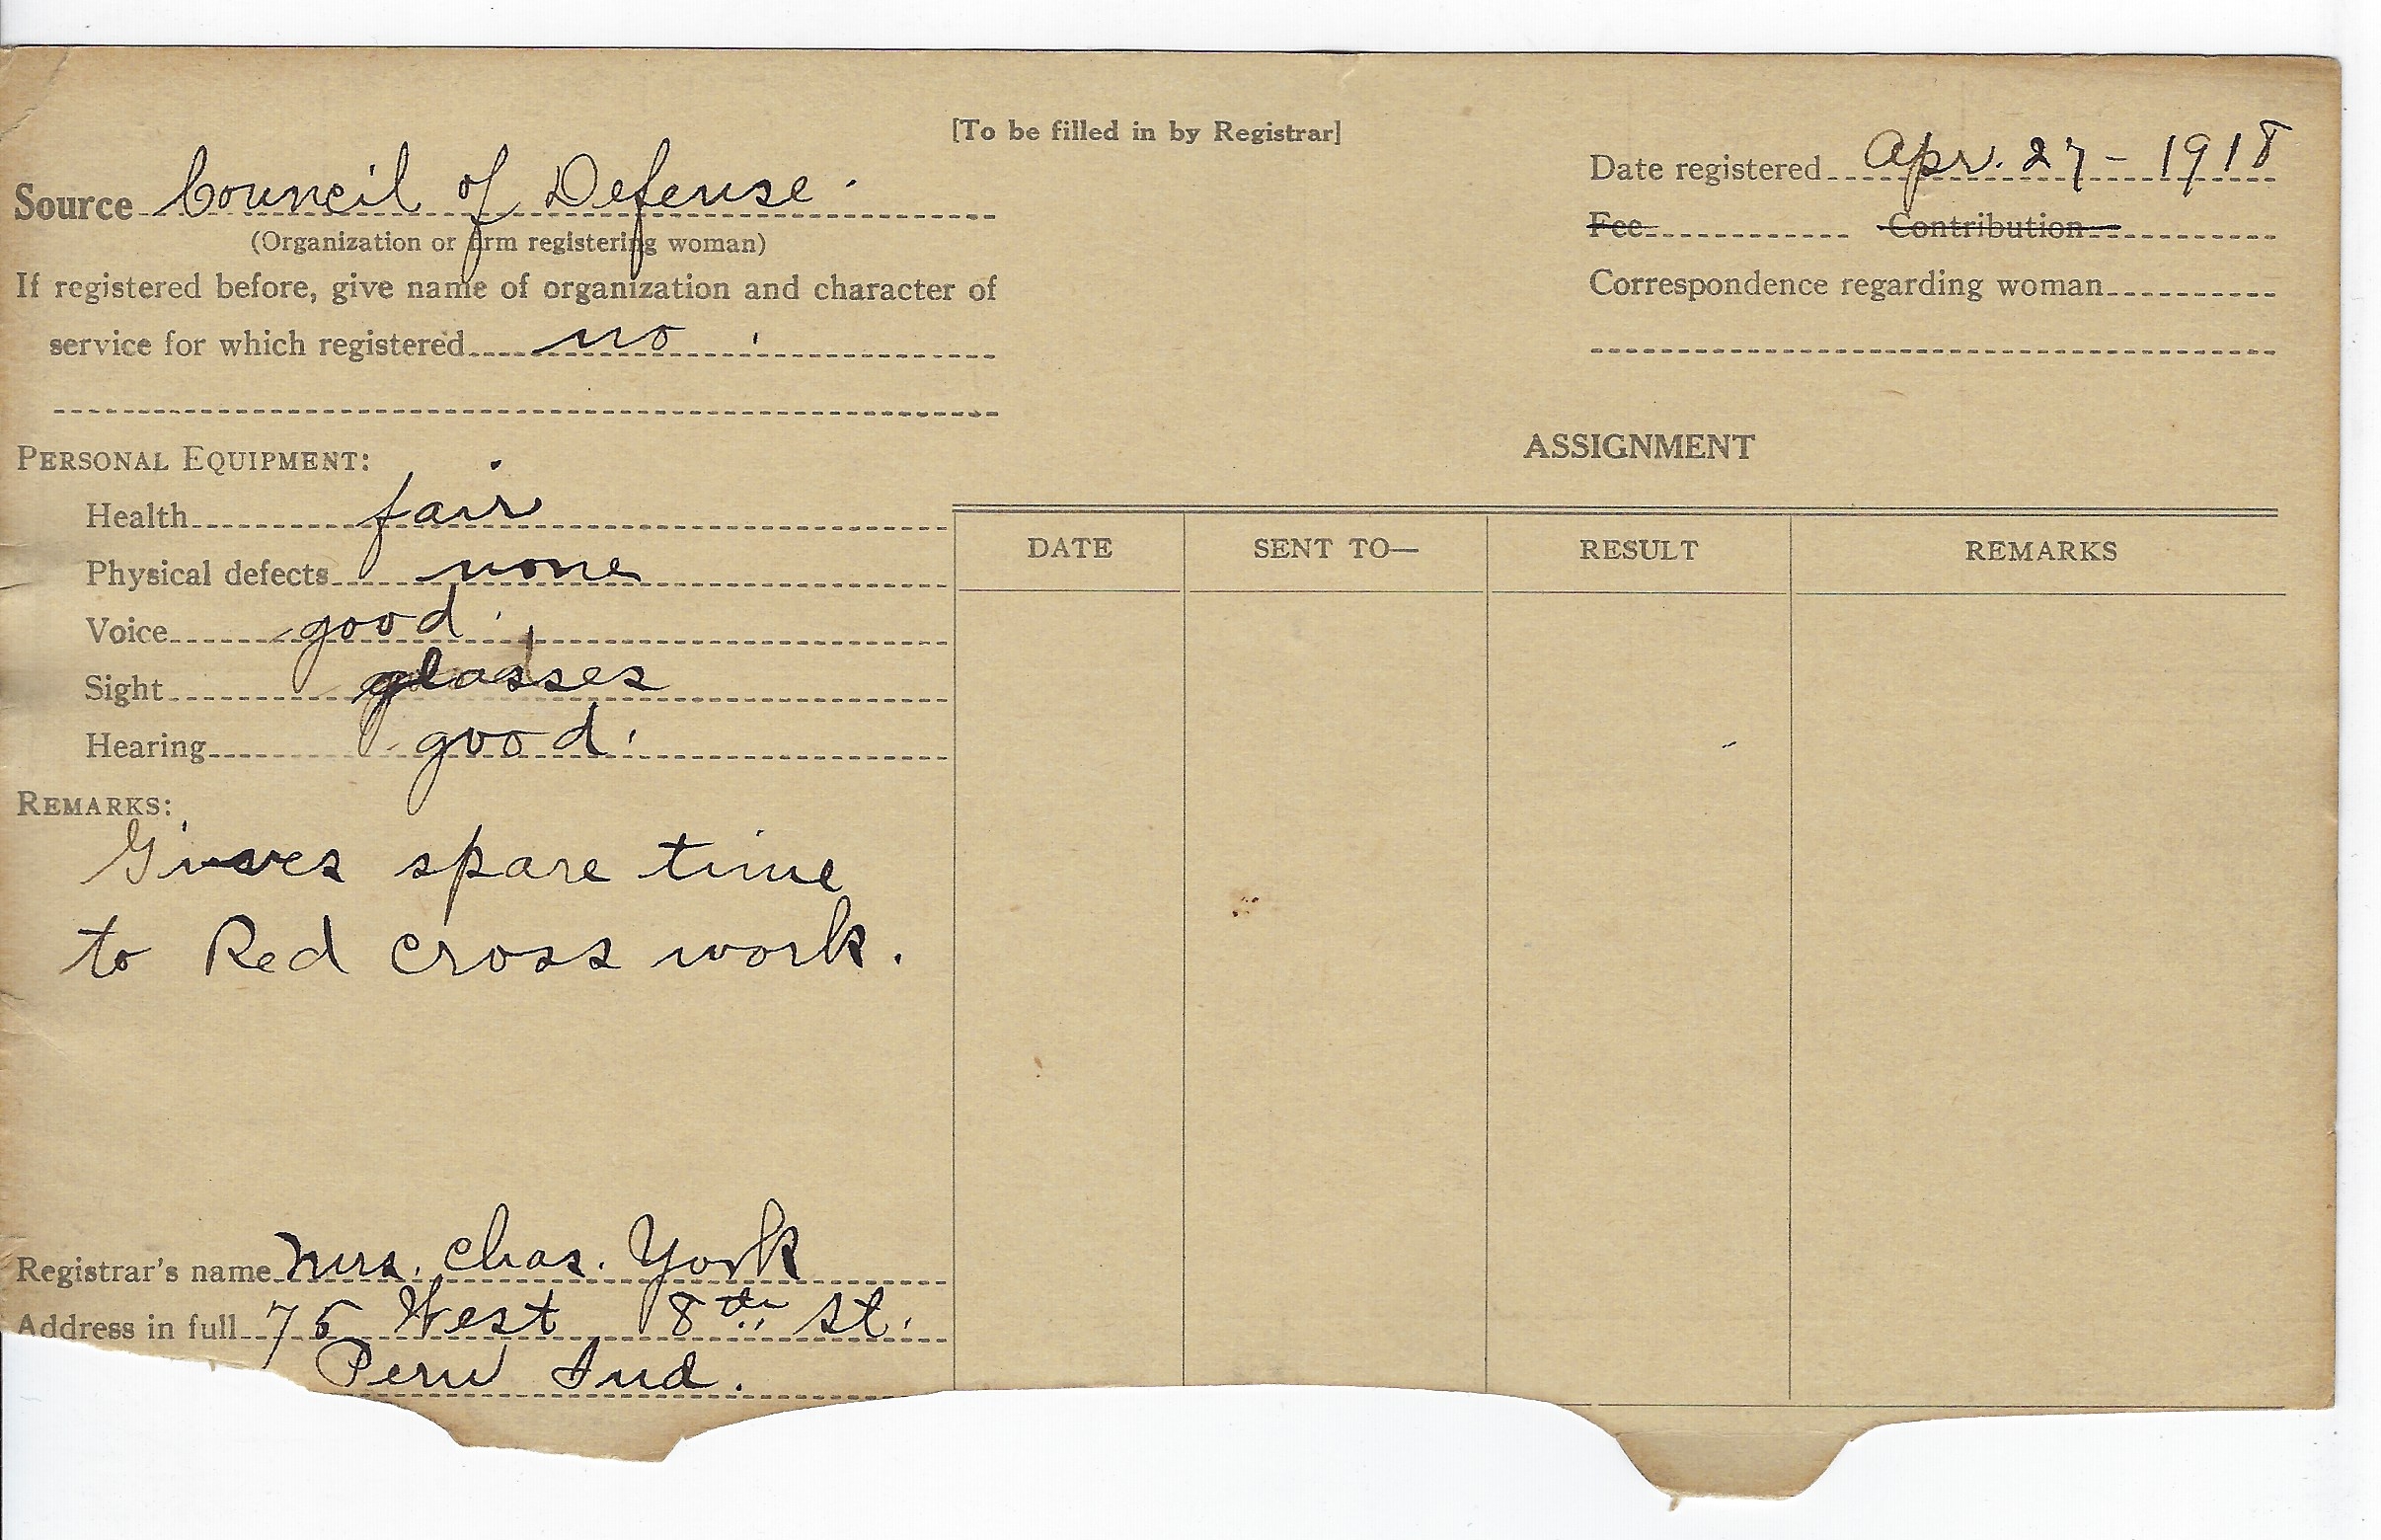 [To be filled in by Registrar]
Source Council of Defense.
(Organization or firm registering woman)
If registered before, give name of organization and character of
service for which registered no
Date registered Apr. 27 - 1918
Fee Contribution
Correspondence regarding woman
PERSONAL EQUIPMENT:
Health fair
Physical defects none
Voice good
Sight glasses
Hearing good
REMARKS:
Gives spare time
to Red Cross work.
Registrar's name Mrs. Chas. York
Address in full 75 West 8th St.
Peru Ind.
ASSIGNMENT
DATE SENT TO— RESULT REMARKS